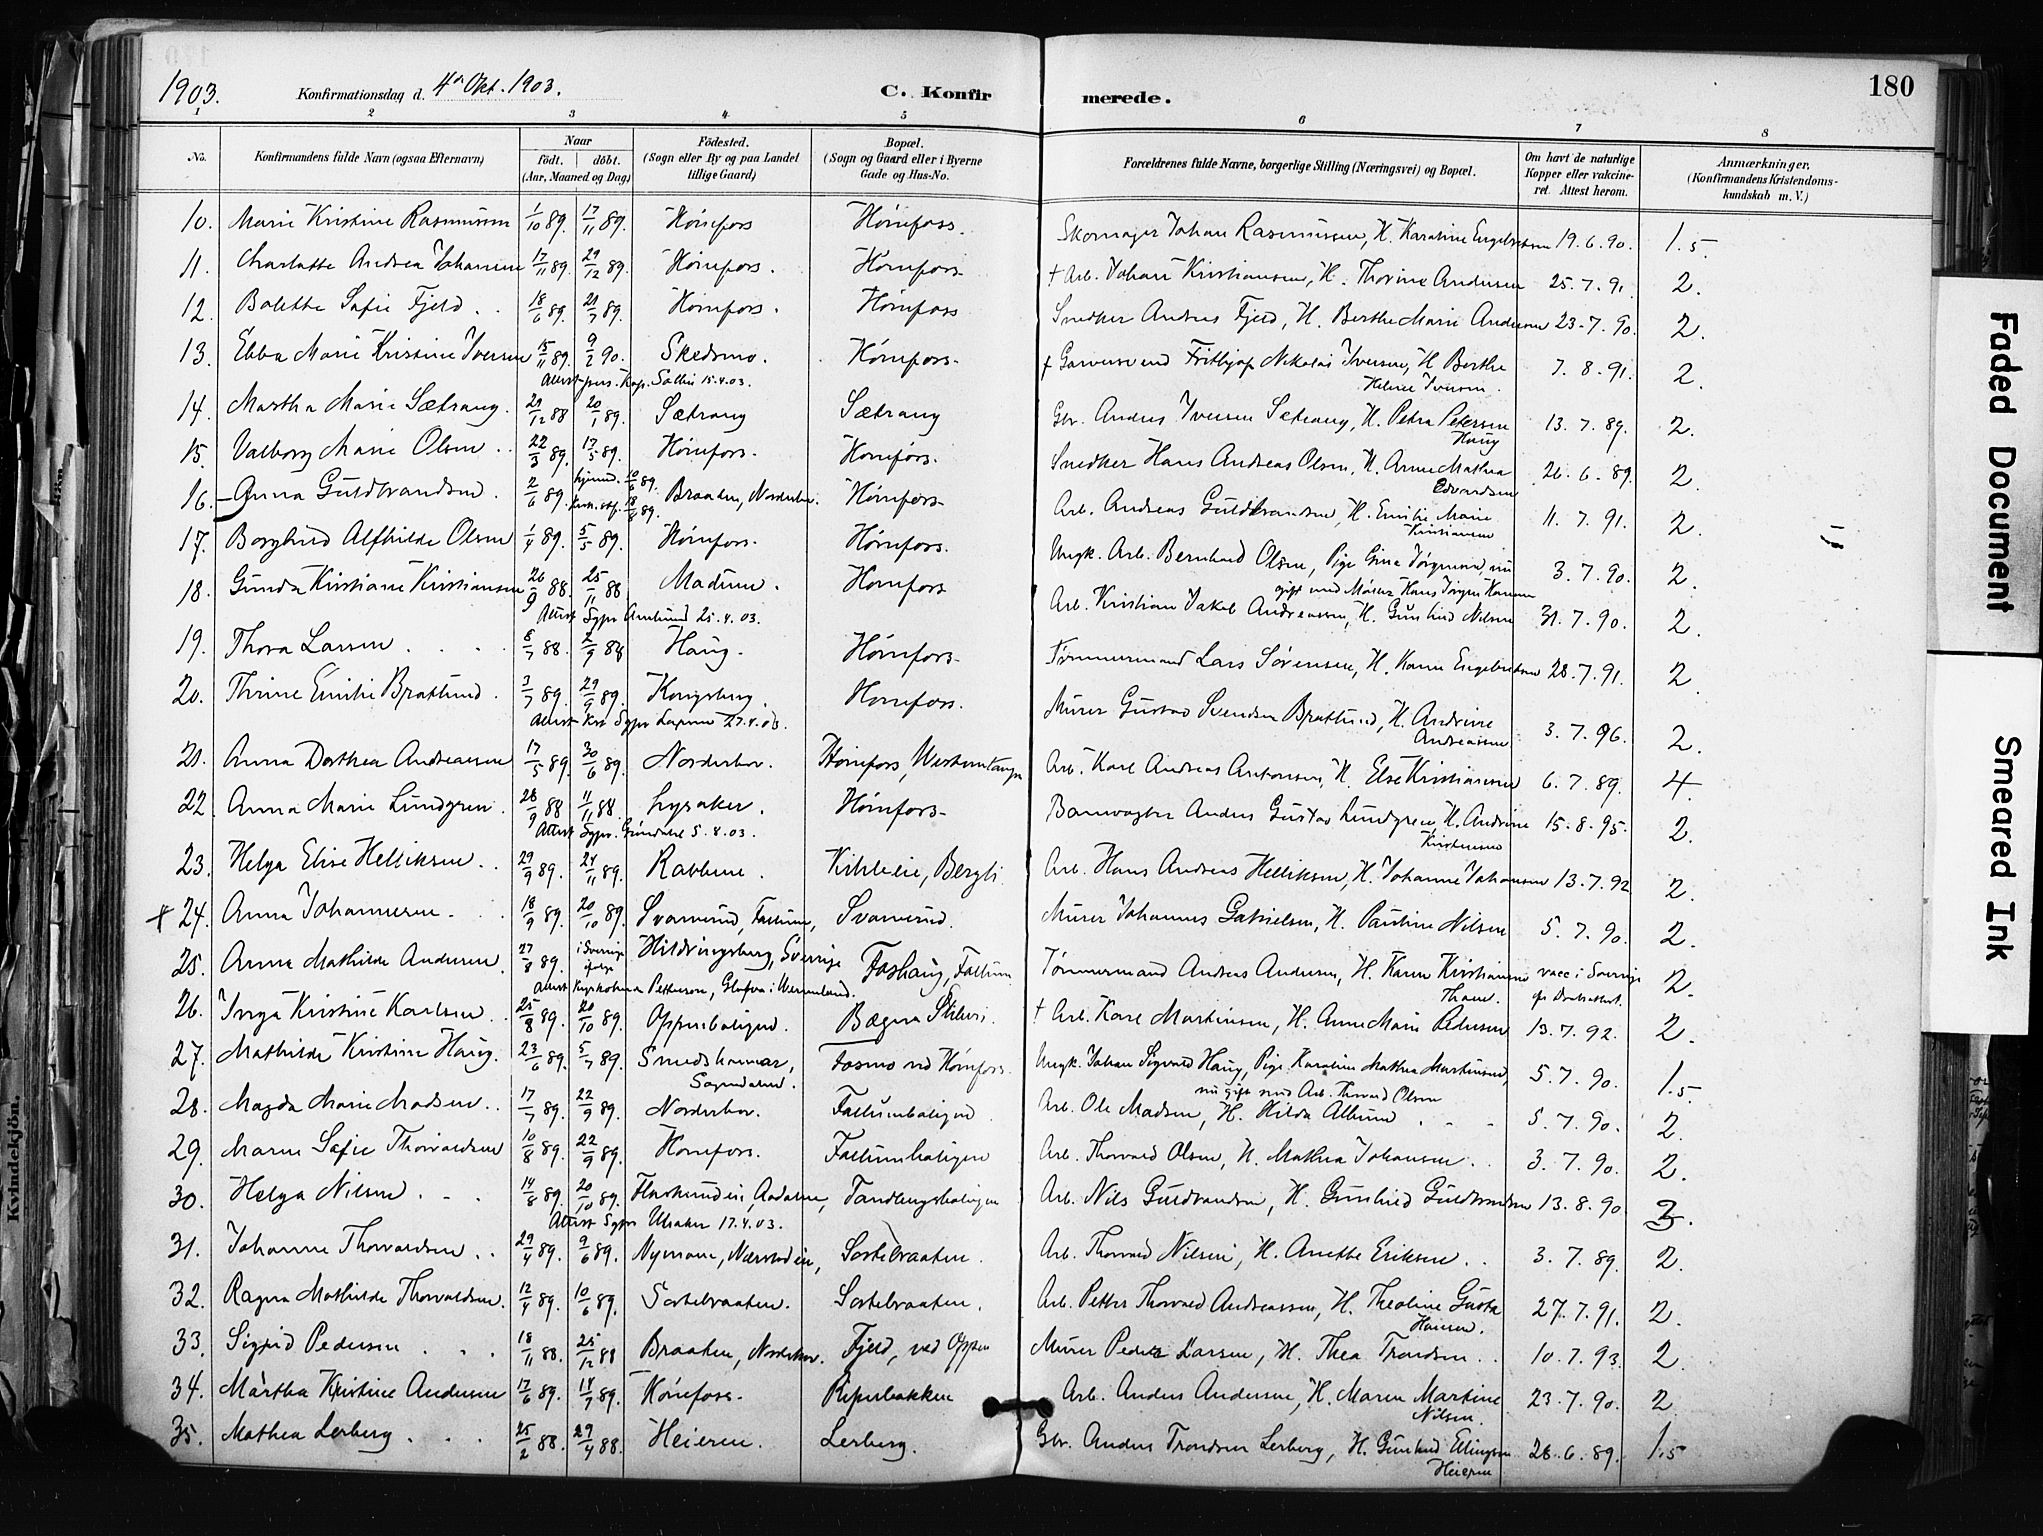 1903. Konfirmationsdag d. 4de Okt. 1903. C. Konfirmerede. 180
1 2 3 4 5 6 7 8
No. Konfirmandens fulde Navn (ogsaa Efternavn) Naar födt. döbt. (Aar, Maaned og Dag) Födested. (Sogn eller By og paa Landet tillige Gaard) Bopæl. (Sogn og Gaard eller i Byerne Gade og Hus-No. Forældrenes fulde Navne, borgerlige Stilling (Næringsvei) og Bopæl. Om havt de naturlige Kopper eller vakcineret. Attest herom. Anmærkninger. (Konfirmandens Kristendomskundskab m. V.)
10. Marie Kristine Rasmussen 1/10 89. 17/11 89. Hönefoss Hönefoss. Skomager Johan Rasmussen, H. Karoline Engebretsen 19.6.90. 1.5
11. Charlotte Andrea Johansen 17/11 89. 29/12 89. Hönefos. Hönefoss † Arb. Johan Kristiansen, H. Thorine Andersen 25.7.91. 2.
12. Bolette Sofie Fjeld 18/6 89. 21/7 89. Hönefoss. Hönefoss Snedker Andreas Fjeld, H. Berthe Marie Andersen 23.7.90. 2.
13. Ebba Marie Kristine Iversen 15/11 89. 9/2 90. Skedsmo. Hönefoss. † Garversvend Frithjof Nikolai Iversen, H. Berthe Helene Iversen. 7.8.91. 2.
Attest pers. Kap. Sollie 15.4.03.
14. Martha Marie Sætrang. 29/12 88 20/1 89. Sætrang Sætrang Gbr. Anders Iversen Sætrang, H. Petra Petersen Haug 13.7.89. 2.
15. Valborg Marie Olsen 22/3 89. 17/5 89. Hönefos. Hönefos. Snedker Hans Andreas Olsen, H. Anne Mathea Edvardsen 26.6.89. 2.
16. Anna Guldbrandsen 2/6 89. hjemmed. 10/6 89. Kirk. stf. 18/8 89. Braaten, Norderhov. Hönefos. Arb. Andreas Guldbrandsen, H. Emilie Marie Kristiansen 11.7.91. 2.
17. Borghild Alfhilde Olsen 1/4 89. 5/5 89. Hönefos. Hönefoss. Ungk. Arb. Bernhard Olsen, Pige Gina Jörgensen, nu gift med Murer Hans Jörgen Hansen 3.7.90. 2.
18. Gunda Kristiane Kristiansen 26/9 88. 25/11 88 Modum. Hönefoss Arb. Kristian Jakob Andreassen, H. Gunhild Nilsen 31.7.90. 2.
Attest Sgpr. Amlund 25.4.03.
19. Thora Larsen 8/7 88. 2/9 88 Haug. Hönefoss. Tömmermand Lars Sörensen, H. Karen Engebretsen 28.7.91. 2
20. Thrine Emilie Bratlund. 3/7 89. 29/9 89. Kongsberg. Hönefoss. Murer Gustav Svendsen Bratlund, H. Andrine Andreassen 3.7.96. 2.
Attest Res. Sgpr. 27.4.03.
21. Anna Dorthea Andreassen 17/5 89. 30/6 89. Norderhov. Hönefos, Westerntangen Arb. Karl Andreas Antonsen, H. Else Kristiansen 6.7.89. 4.
22. Anna Marie Lundgren. 28/9 88 11/11 88. Lysaker. Hönefos. Banevogter Anders Gustav Lundgren, H. Andrine Kristensen 15.8.95. 2.
Attest Sgpr. Gründahl 5.8.03.
23. Helga Elise Helliksen 29/9 89. 24/11 89. Rabben. Kihlelie, Bergli Arb. Hans Andreas Helliksen, H. Johanne Johansen 13.7.92 2.
24. Anna Johannesen. 18/9 89. 20/10 89. Svarverud, Follum, Svarverud. Murer Johannes Gabrielsen, H. Pauline Nilsen 5.7.90. 2.
25. Anna Mathilde Andersen. 27/8 89. i Sverrige Hildringsberg, Sverrige Foshaug, Follum Tömmermand Andreas Andersen, H. Karen Kristiansen Thoen. vacc. i Sverrige 2.
Attest Kyrkoherre Petterson, Glafva i Wermland.
26. Inga Kristine Karlsen 25/8 89. 20/10 89. Oppenboligen. Bægna Sliberi. † Arb. Karl Martinsen, H. Anne Marie Pedersen 13.7.92. 2.
27. Mathilde Kristine Haug. 23/6 89. 5/7 89. Smedshammar, Sognedalen. Fosmo ved Hönefoss. Ungk. Johan Sigvald Haug, Pige Karoline Mathea Martinsen, nu gift med Arb. Thorvald Olsen 5.7.90. 1.5
28. Magda Marie Madsen 17/7 89. 22/9 89. Norderhov. Follumboligen Arb. Ole Madsen, H. Hilda Allund 5.7.90. 2.
29. Maren Sofie Thorvaldsen 10/8 89. 22/9 89. Hönefos. Follumboligen Arb. Thorvald Olsen, H. Mathea Johansen 3.7.90. 2.
30. Helga Nilsen 14/8 89. 20/10 89. Flaskerudeie, Aadalen, Tandbergsboligen Arb. Nils Guldbrandsen, H. Gunhild Guldbrandsen 13.8.90 2.
Attest Sgpr. Ulsaker 17.4.03.
31. Johanne Thorvaldsen 29/4 89. 9/6 89. Nymoen, Nærstadeie, Sortebraaten. Arb. Thorvald Nilsen, H. Anette Eriksen 3.7.89. 2.
32. Ragna Mathilde Thorvaldsen. 12/4 89. 10/6 89. Sortebraaten. Sortebraaten. Arb. Petter Thorvald Andreassen, H. Theoline Gusta Hansen. 27.7.91. 2.
33. Sigrid Pedersen 18/11 88. 25/12 88 Braaten, Norderhov. Fjeld, ved Oppen Murer Peder Larsen, H. Thea Trondsen 10.7.93. 2.
34. Martha Kristine Andersen 17/6 89. 14/7 89. Hönefoss. Ripesbakken Arb. Anders Andersen, H. Maren Martine Nilsen. 23.7.90. 2
35. Mathea Lerberg 25/2 88. 29/4 88. Heieren. Lerberg. Gbr. Anders Trondsen Lerberg, H. Gunhild Ellingsen Heieren 28.6.89. 1.5
Kvindekjön.
Faded Document
Smeared Ink